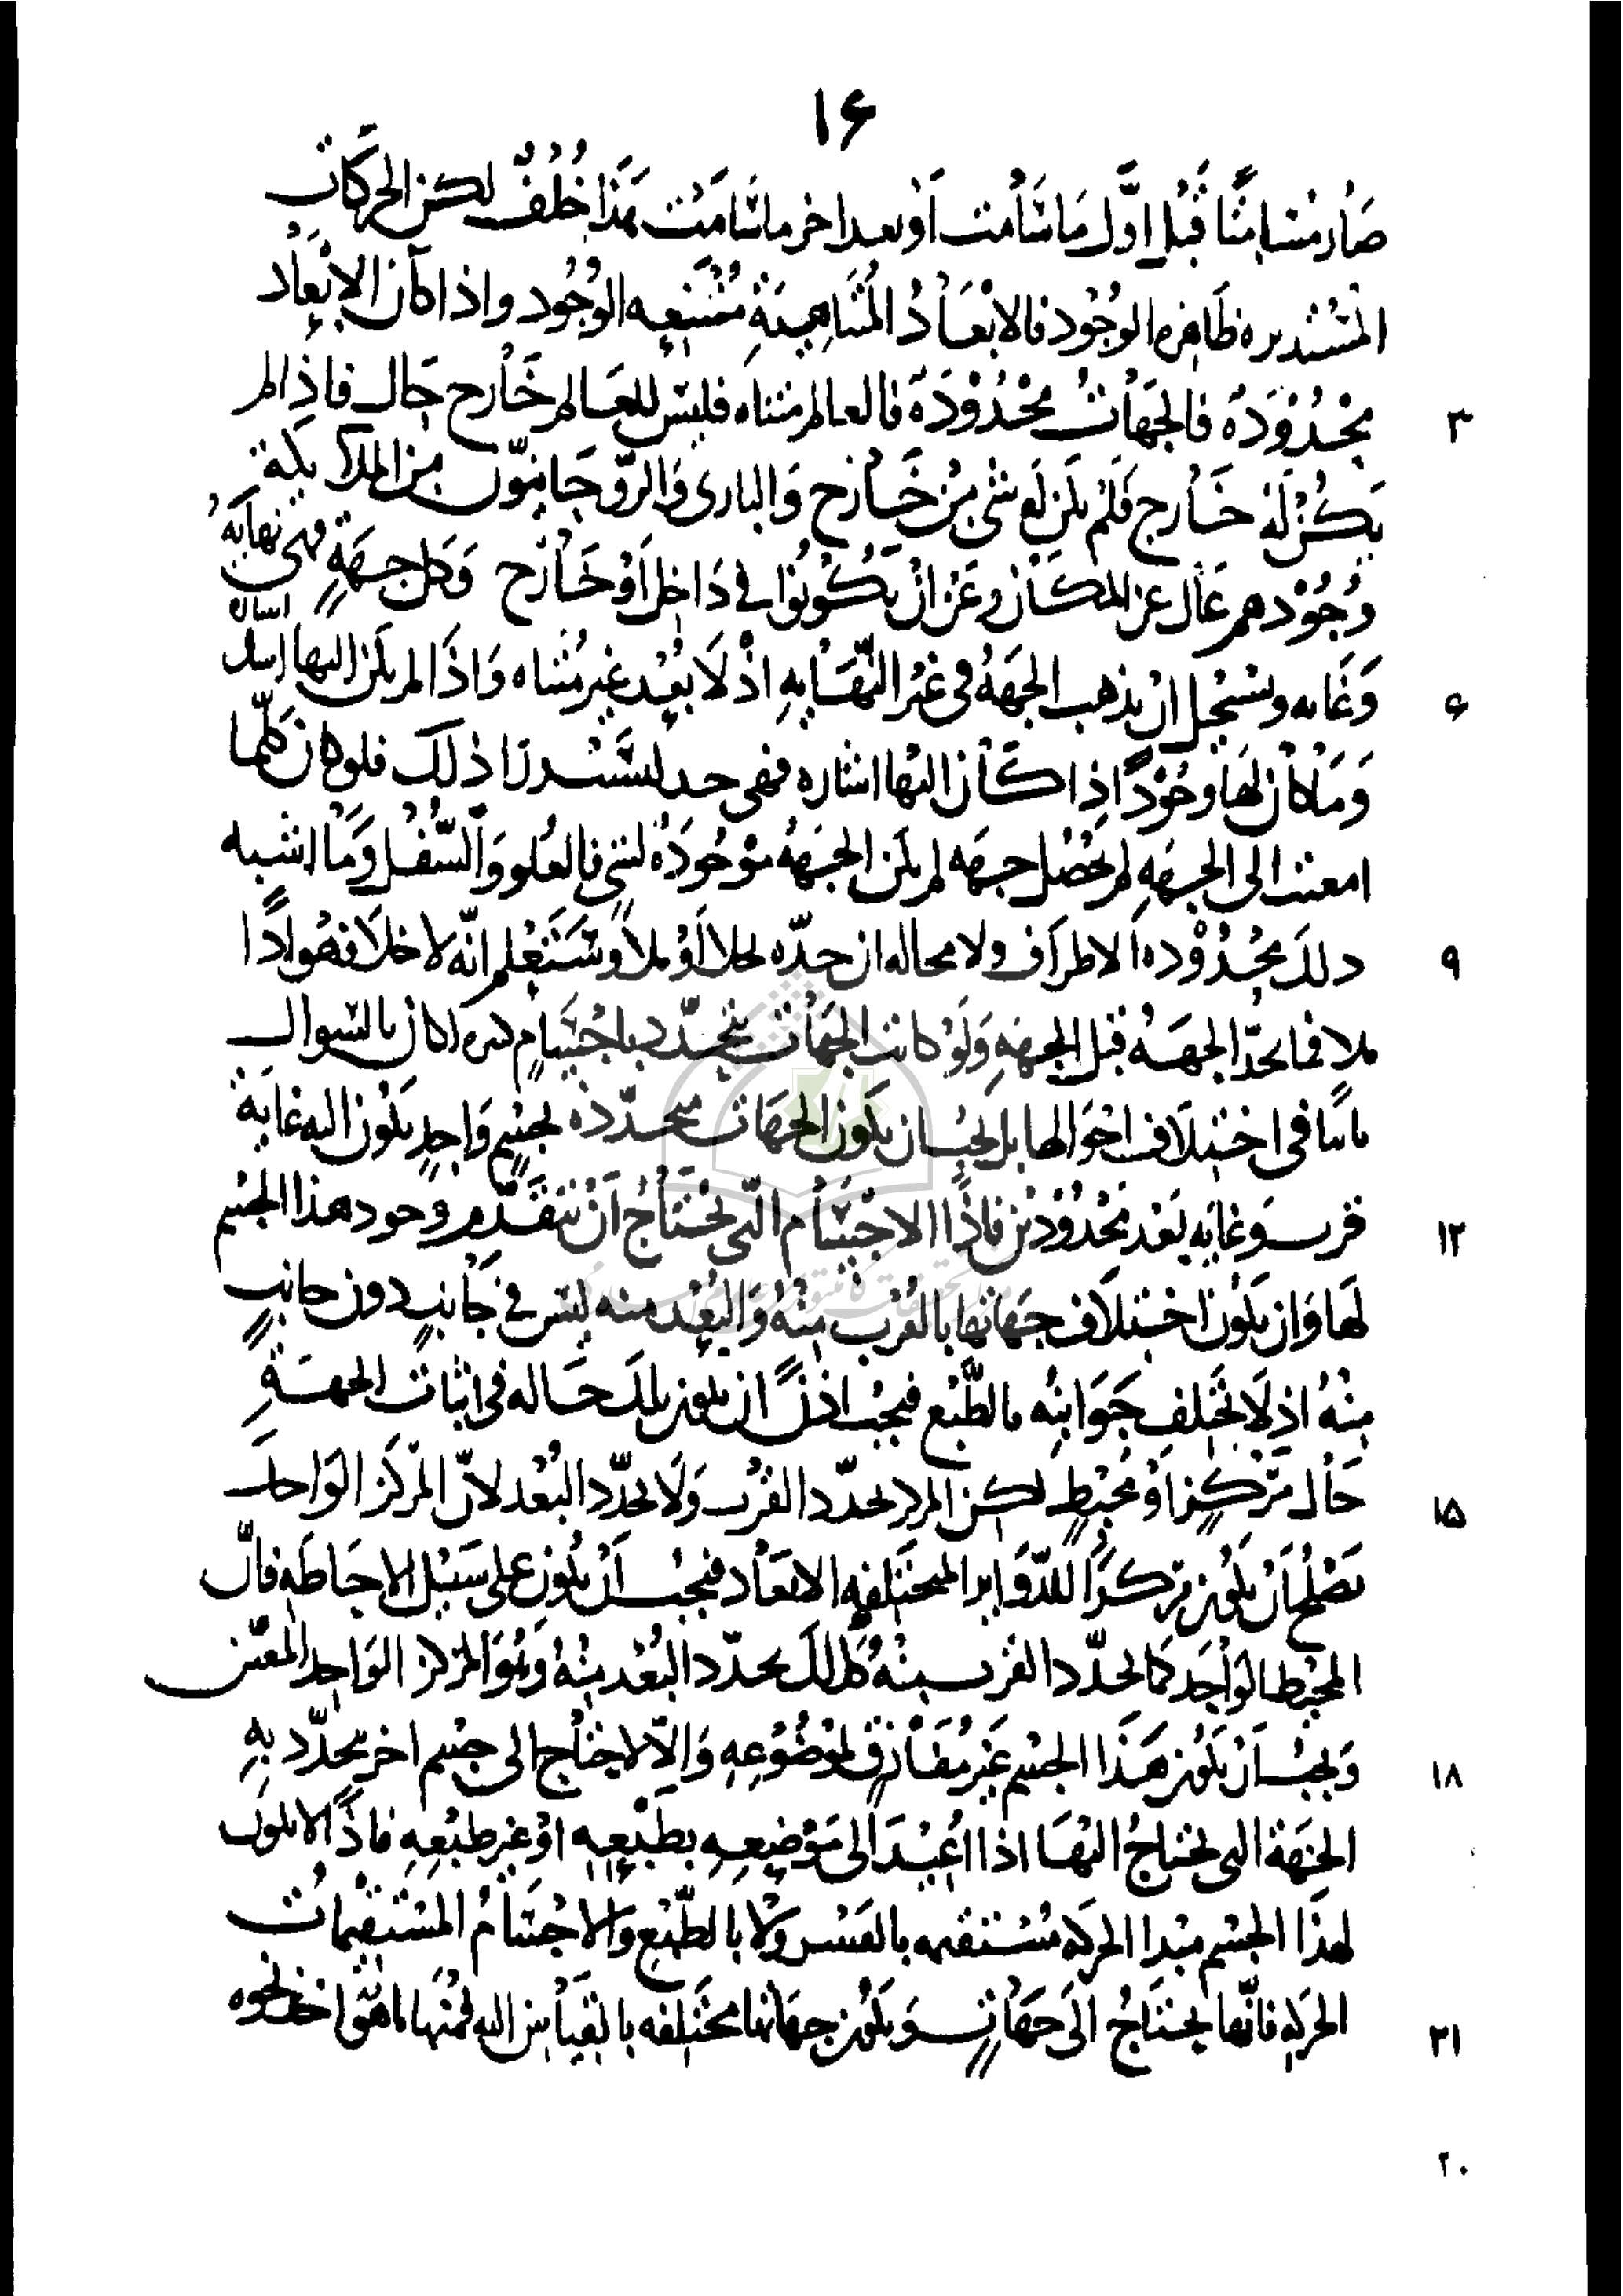 ١۶
صار مسامتا قبل اول ما سامت او بعد اخر ما سامت هذا خلف لكن الحركات
المستديره ظاهره الوجود فالابعاد المتناهية ممتنعه الوجود واذا كان الابعاد
٣
محدودة فالجهات محدودة فالعالم متناه فليس للعالم خارج خال فاذا لم
يكن له خارج فلم يكن له شئ من خارج والبارى والروحانيون من الملائكة
وجودهم عال عن المكان وعن ان يكونوا فى داخل او خارج وكل جهة فهى نهاية
۶
وغايه ويستحيل ان يذهب الجهة فى غير النهايه اذ لا بعد غير متناه واذا لم يكن اليها اشاره
وما كان لها وجود اذا كان اليها اشاره فهى حد ليست وراء ذلك فلو كان كلما
امعنت الى الجهة لم يحصل جهه لم يكن الجهة موجودة لشئ فالعلو والسفل وما اشبه
٩
ذلك محدوده الاطراف ولا محاله ان حده بخلا او ملا وستعلم انه لا خلا فهو اذا
ملا فما يحد الجهة قبل الجهة ولو كانت الجهات يتحدد باجسام كثيره لكان بالسوال
باقيا فى اختلاف احوالها بل يجب ان يكون الجهات متحدده بجسم واحد يكون اليه غاية
١٢
قرب وغايه بعد محدودين فاذا الاجسام التى تحتاج ان يتقدم وجود هذا الجسم
لها وان يكون اختلاف جهاتها بالقرب منه والبعد منه ليس فى جانب دون جانب
منه اذ لا تختلف جوانبه بالطبع فيجب اذن ان يكون بذلك حاله فى اثبات الجهة
١۵
حال مركز او محيط لكن المركز يحدد القرب ولا يحدد البعد لان المركز الواحد
يصلح ان يكون مركزا للدواير المختلفه الابعاد فيجب ان يكون على سبيل الاحاطه فان
المحيط الواحد كما يحدد القرب منه كذلك يحدد البعد منه وهو المركز الواحد المعين
١٨
ويجب ان يكون هذا الجسم غير مفارق لموضوعه والا لاحتاج الى جسم اخر يتحدد به
الجهة التى يحتاج اليها اذا اعيد الى موضعه بطبعه او غير طبعه فاذا لا يكون
لهذا الجسم مبدا الحركه مستقيمه بالقسر ولا بالطبع والاجسام المستقيمات
٢١
الحركة فانها يحتاج الى جهات ويكون جهاتها مختلفه بالقياس اليه فمنها ما هى اخذ نحوه
٢٠